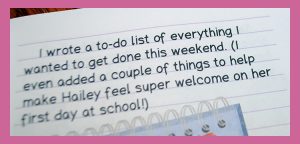 I wrote a to-do list of everything I
wanted to get done this weekend. (I
even added a couple of things to help
make Hailey feel super welcome on her
first day at school!)